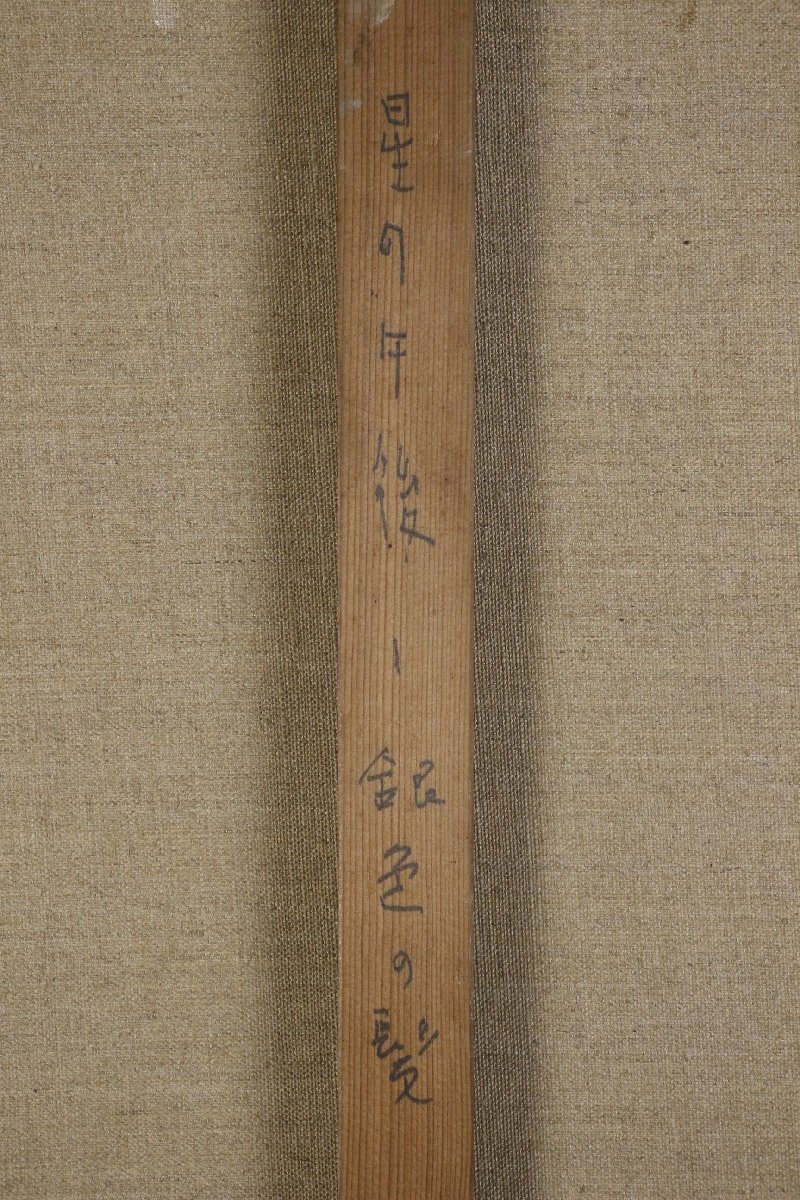 星の午後ー銀色の髪